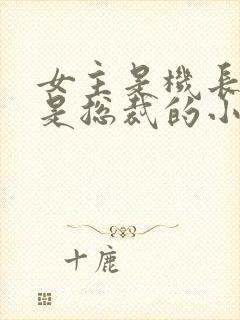 女主是機長
是总裁的小
十鹿